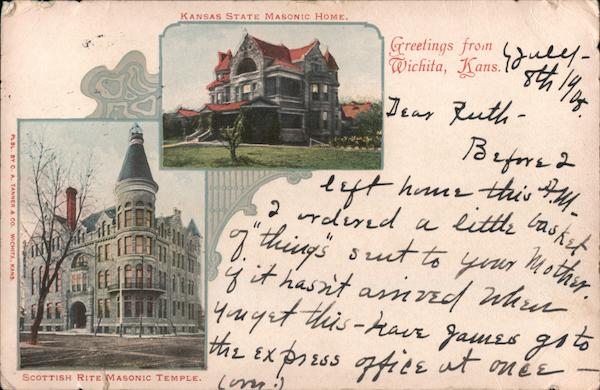 KANSAS STATE MASONIC HOME.
Greetings from
Wichita, Kans.
July-
8th/08.
Dear Ruth-
Before I
left home this A.M.
I ordered a little basket
of "things" sent to your Mother.
if it hasn't arrived when
you get this - have James go to
the express office at once -
(over:)
PUBL. BY C. A. TANNER & CO. WICHITA, KANS.
SCOTTISH RITE MASONIC TEMPLE.